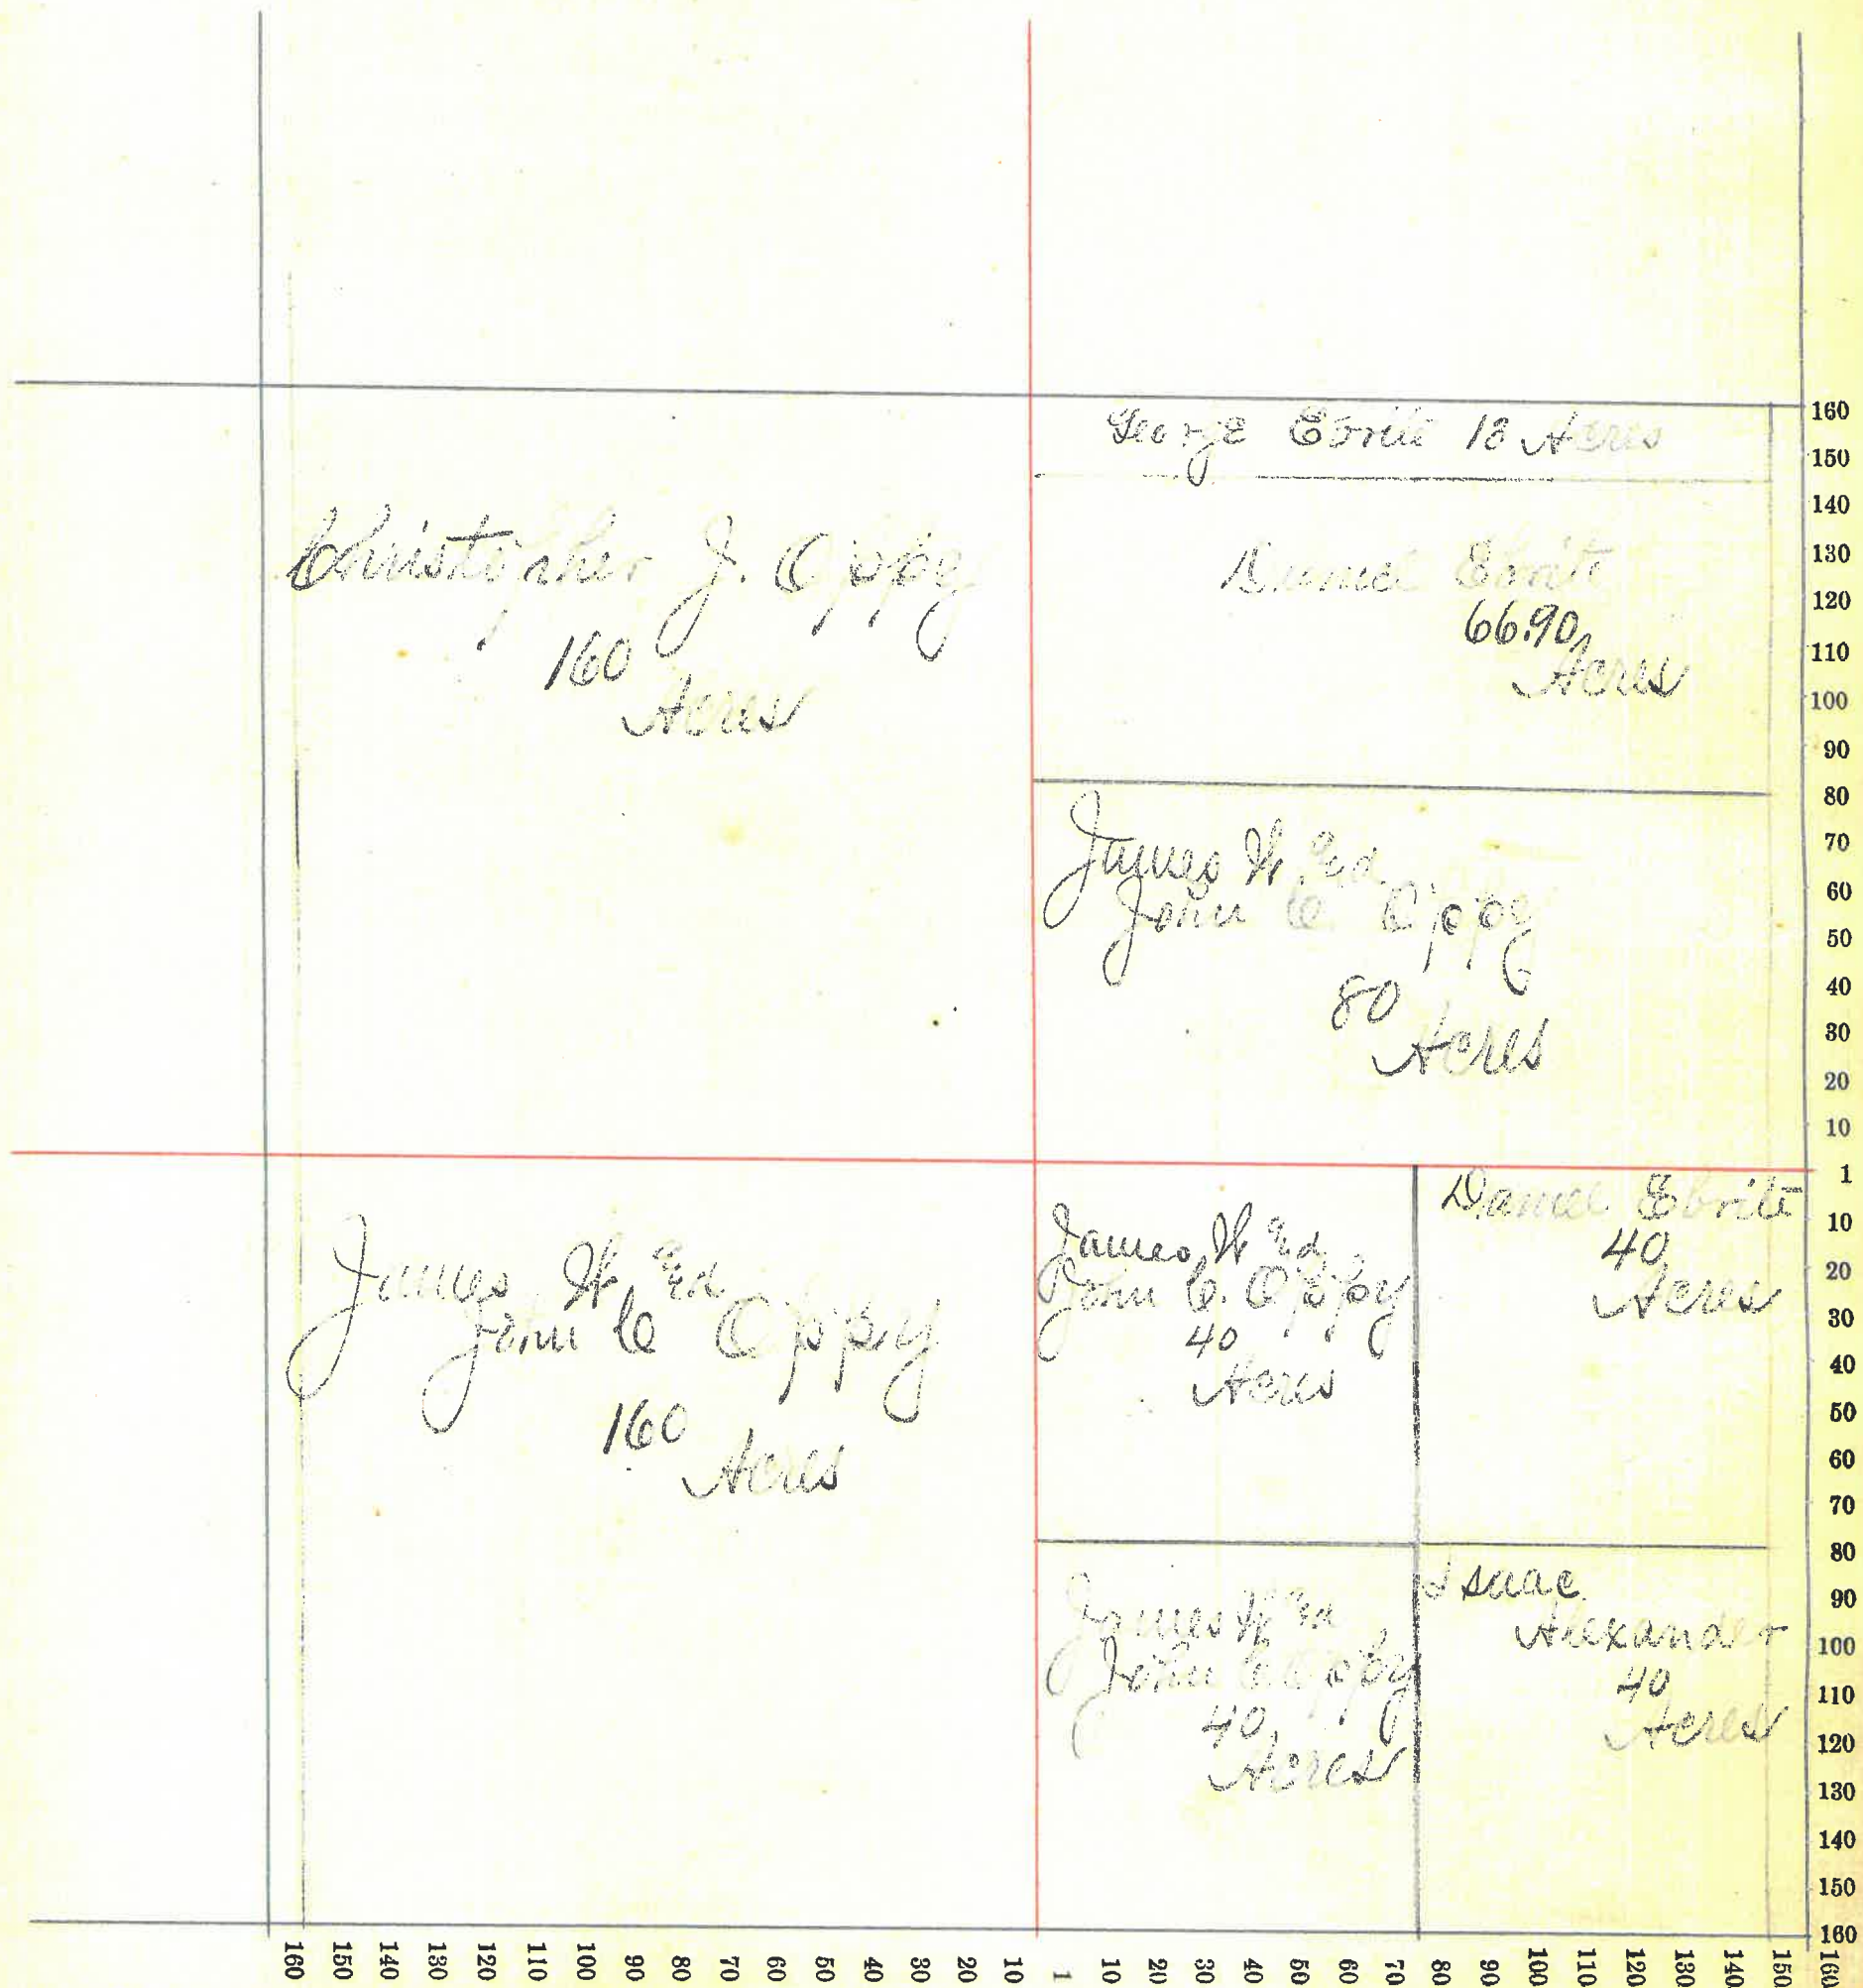 George Ebrite 13 Acres
Christopher J. Oppy
160
Acres
Daniel Ebrite
66.90
Acres
James W. &
John C Oppy
80
Acres
James W &
John C Oppy
160
Acres
James W &
John C. Oppy
40
Acres
Daniel Ebrite
40
Acres
James W &
John C Oppy
40
Acres
Isaac
Alexander
40
Acres
160
150
140
130
120
110
100
90
80
70
60
50
40
30
20
10
1
10
20
30
40
50
60
70
80
90
100
110
120
130
140
150
160
160 150 140 130 120 110 100 90 80 70 60 50 40 30 20 10 1 10 20 30 40 50 60 70 80 90 100 110 120 130 140 150 160